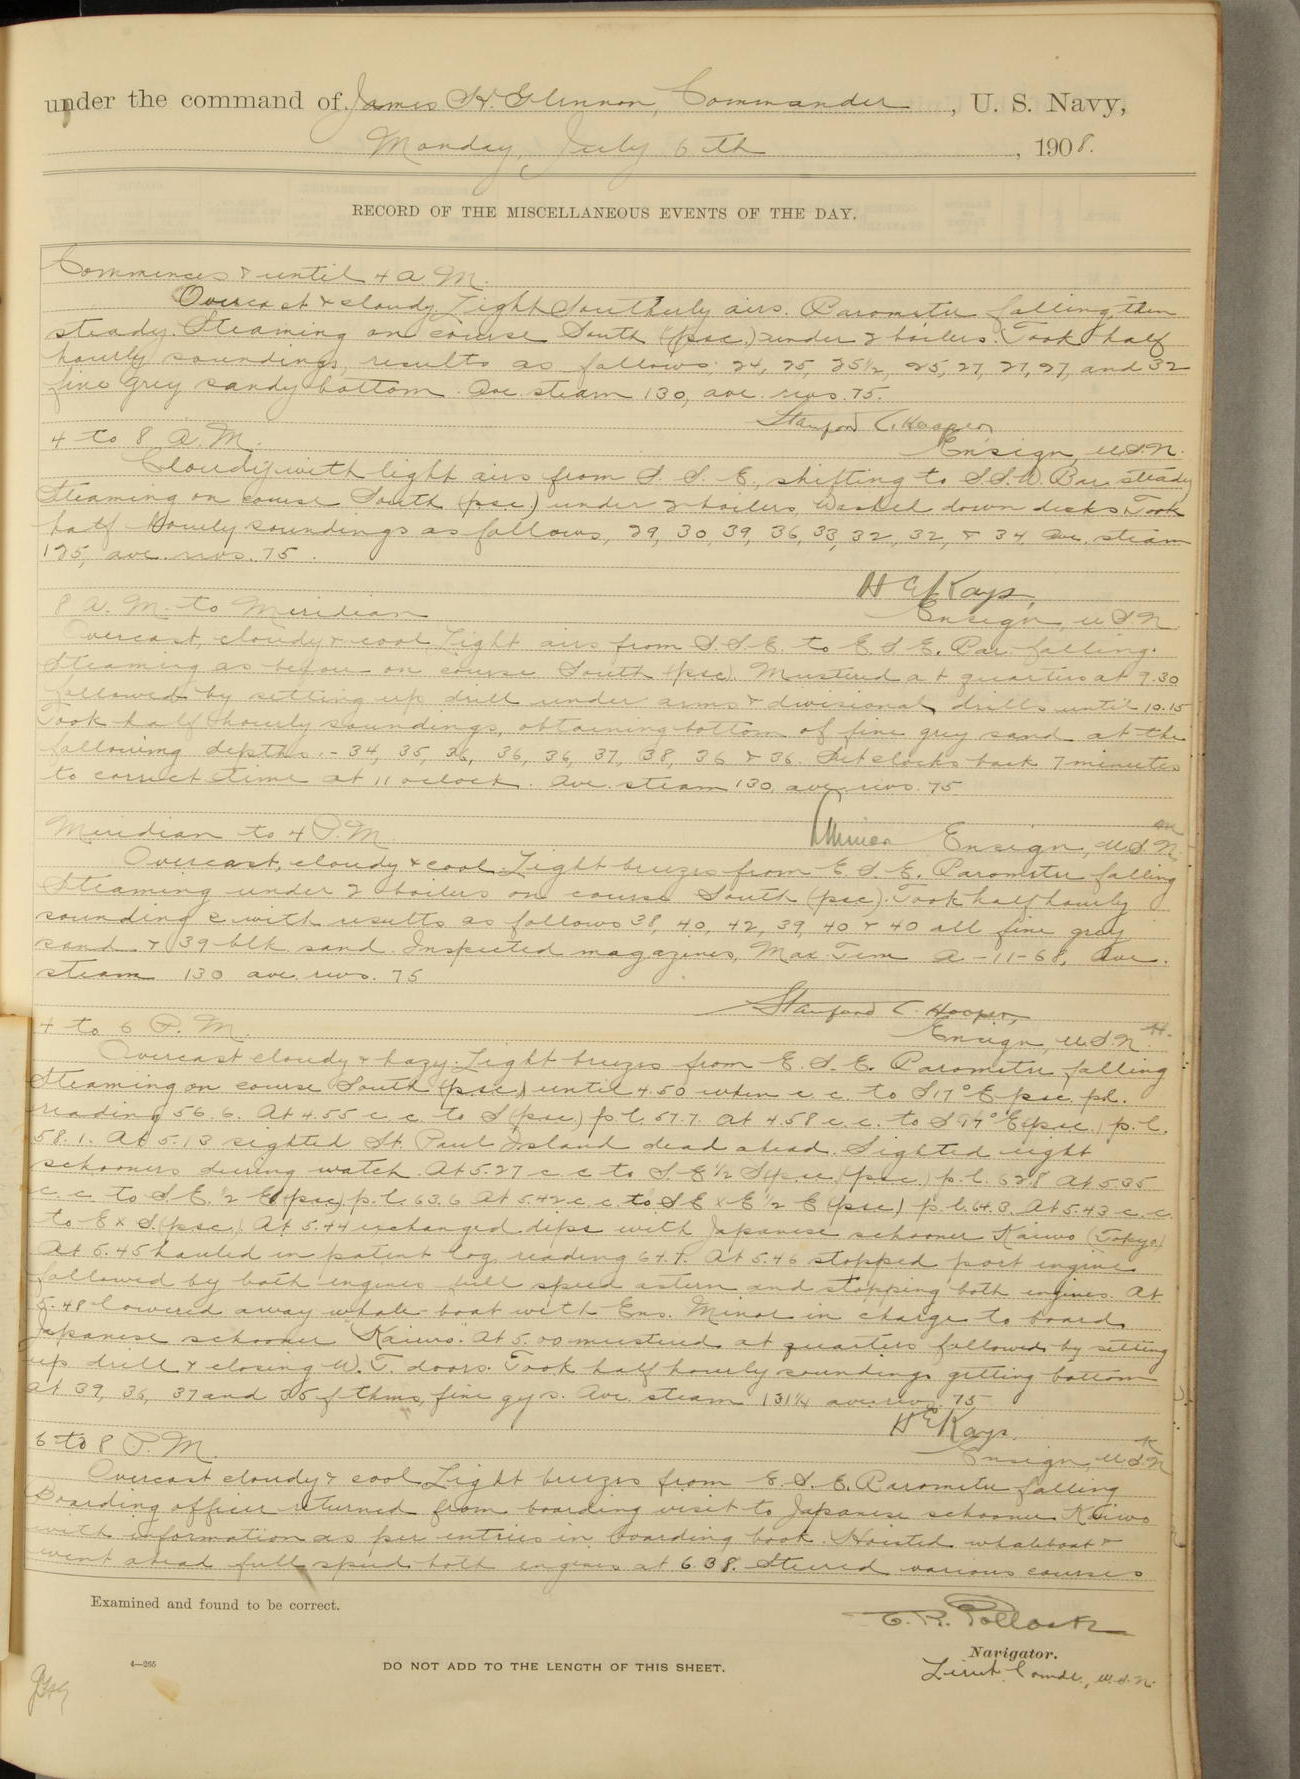 under the command of James H. Glennon, Commander, U. S. Navy,
Monday, July 6th, 1908.
RECORD OF THE MISCELLANEOUS EVENTS OF THE DAY.
Commences & until 4 A. M.
Overcast & cloudy. Light Southerly airs. Barometer falling, then
steady. Steaming on course South (psc.) under 2 boilers. Took half
hourly soundings, results as follows: 24, 25, 25½, 25, 27, 27, 27, and 32
fine grey sandy bottom. Ave. steam 130, ave. revs. 75.
Stanford C. Hooper,
Ensign, U.S.N.
4 to 8 A. M.
Cloudy with light airs from S. S. E., shifting to S.S.W. Bar. steady
Steaming on course South (psc.) under 2 boilers. Washed down decks. Took
half hourly soundings as follows, 29, 30, 39, 36, 33, 32, 32, & 34. Ave. steam
125, ave. revs. 75.
H E Kays,
Ensign, U.S.N.
8 A. M. to Meridian
Overcast, cloudy & cool. Light airs from S.S.E. to E.S.E. Bar falling.
Steaming as before on course South (psc). Mustered at quarters at 9.30
followed by setting up drill under arms & divisional drills until 10.15
Took half hourly soundings, obtaining bottom of fine grey sand at the
following depths:- 34, 35, 36, 36, 36, 37, 38, 36 & 36. Set clocks back 7 minutes
to correct time at 11 o'clock. Ave. steam 130, ave. revs. 75
Minor Ensign, U.S.N.
Meridian to 4 P. M.
Overcast, cloudy & cool. Light breezes from E. S. E. Barometer falling
Steaming under 2 boilers on course South (psc). Took half hourly
soundings with results as follows 38, 40, 42, 39, 40 & 40 all fine grey
sand & 39 blk sand. Inspected magazines, Max. Tem A-11-68, Ave.
steam 130 ave. revs. 75
Stanford C. Hooper,
Ensign, U.S.N. H.
4 to 6 P. M.
Overcast cloudy & hazy. Light breezes from E. S. E. Barometer falling
Steaming on course South (psc) until 4.50 when c. c. to S 17° E psc. pl.
reading 56.6. At 4.55 c. c. to S (psc) p. l. 57.7. At 4.58 c. c. to S 17° E (psc.) p. l.
58.1. At 5.13 sighted St. Paul Island dead ahead. Sighted eight
schooners during watch. At 5.27 c. c. to S. E ½ S (psc.) p. l. 62.8 At 5.35
c. c. to S E. ½ E (psc) p. l. 63.6 At 5.42 c. c. to S E x E ½ E (psc) p. l. 64.3. At 5.43 c. c.
to E x S (psc). At 5.44 exchanged dips with Japanese schooner Kaiwo (Tokyo)
At 5.45 hauled in patent log reading 64.7. At 5.46 stopped port engine
followed by both engines full speed astern and stopping both engines. At
5.48 lowered away whale-boat with Ens. Minor in charge to board
Japanese schooner "Kaiwo". At 5.00 mustered at quarters followed by setting
up drill & closing W. T. doors. Took half hourly soundings getting bottom
at 39, 36, 37 and 35 fthms, fine gy s. Ave. steam 131¼ ave. revs. 75
H E Kays.
Ensign, U.S.N. K
6 to 8 P. M.
Overcast cloudy & cool. Light breezes from E. S. E. Barometer falling
Boarding officer returned from boarding visit to Japanese schooner Kaiwo
with information as per entries in boarding book. Hoisted whaleboat &
went ahead full speed both engines at 6.38. Steered various courses
Examined and found to be correct.
C. R. Pollock
Navigator.
Lieut. Comdr., U.S.N.
4—265
DO NOT ADD TO THE LENGTH OF THIS SHEET.